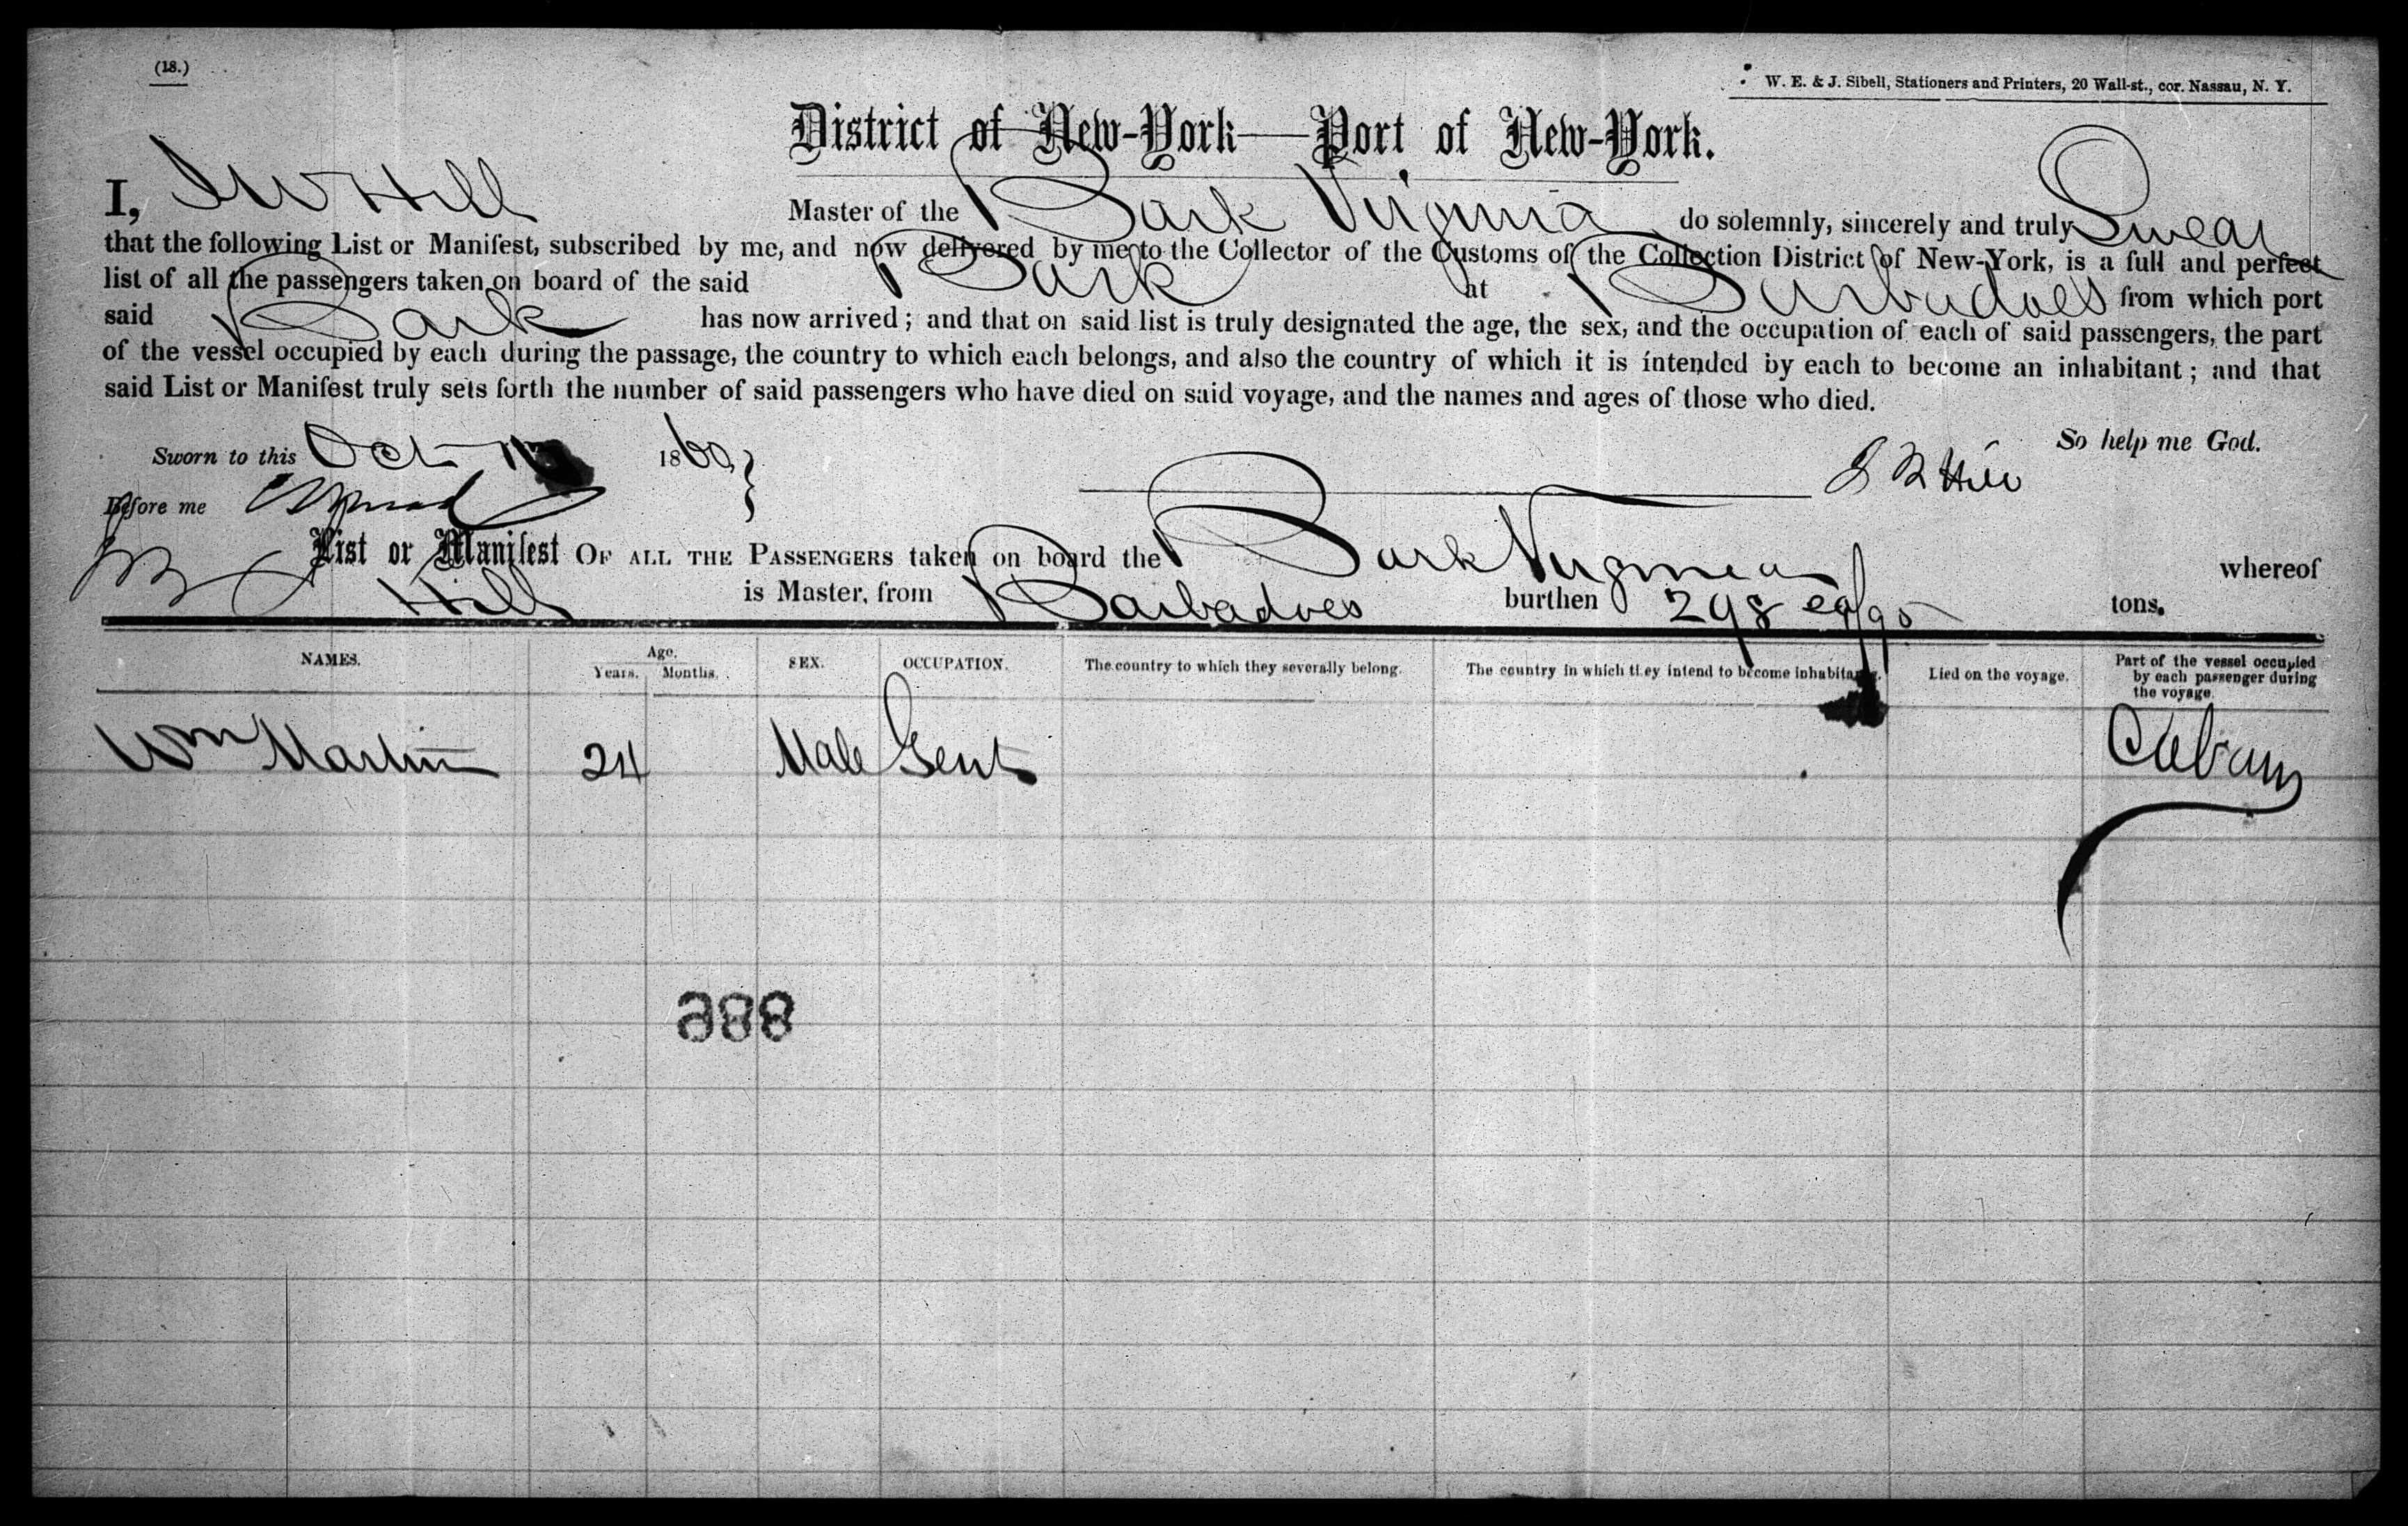 (18.)
W. E. & J. Sibell, Stationers and Printers, 20 Wall-st., cor. Nassau, N. Y.
District of New-York—Port of New-York.
I, Hill Master of the Bark Virginia do solemnly, sincerely and truly Swear
that the following List or Manifest, subscribed by me, and now delivered by me to the Collector of the Customs of the Collection District of New-York, is a full and perfect
list of all the passengers taken on board of the said Bark at Barbadoes from which port
said Bark has now arrived; and that on said list is truly designated the age, the sex, and the occupation of each of said passengers, the part
of the vessel occupied by each during the passage, the country to which each belongs, and also the country of which it is intended by each to become an inhabitant; and that
said List or Manifest truly sets forth the number of said passengers who have died on said voyage, and the names and ages of those who died.
So help me God.
Sworn to this Oct 1860
Hill
Before me
List or Manifest OF ALL THE PASSENGERS taken on board the Bark Virginia whereof
Hill is Master, from Barbadoes burthen 298 tons.
NAMES. Age. Years. Months. SEX. OCCUPATION. The country to which they severally belong. The country in which they intend to become inhabitants. Died on the voyage. Part of the vessel occupied by each passenger during the voyage.
Wm Martin 24 Male Gent Cabin